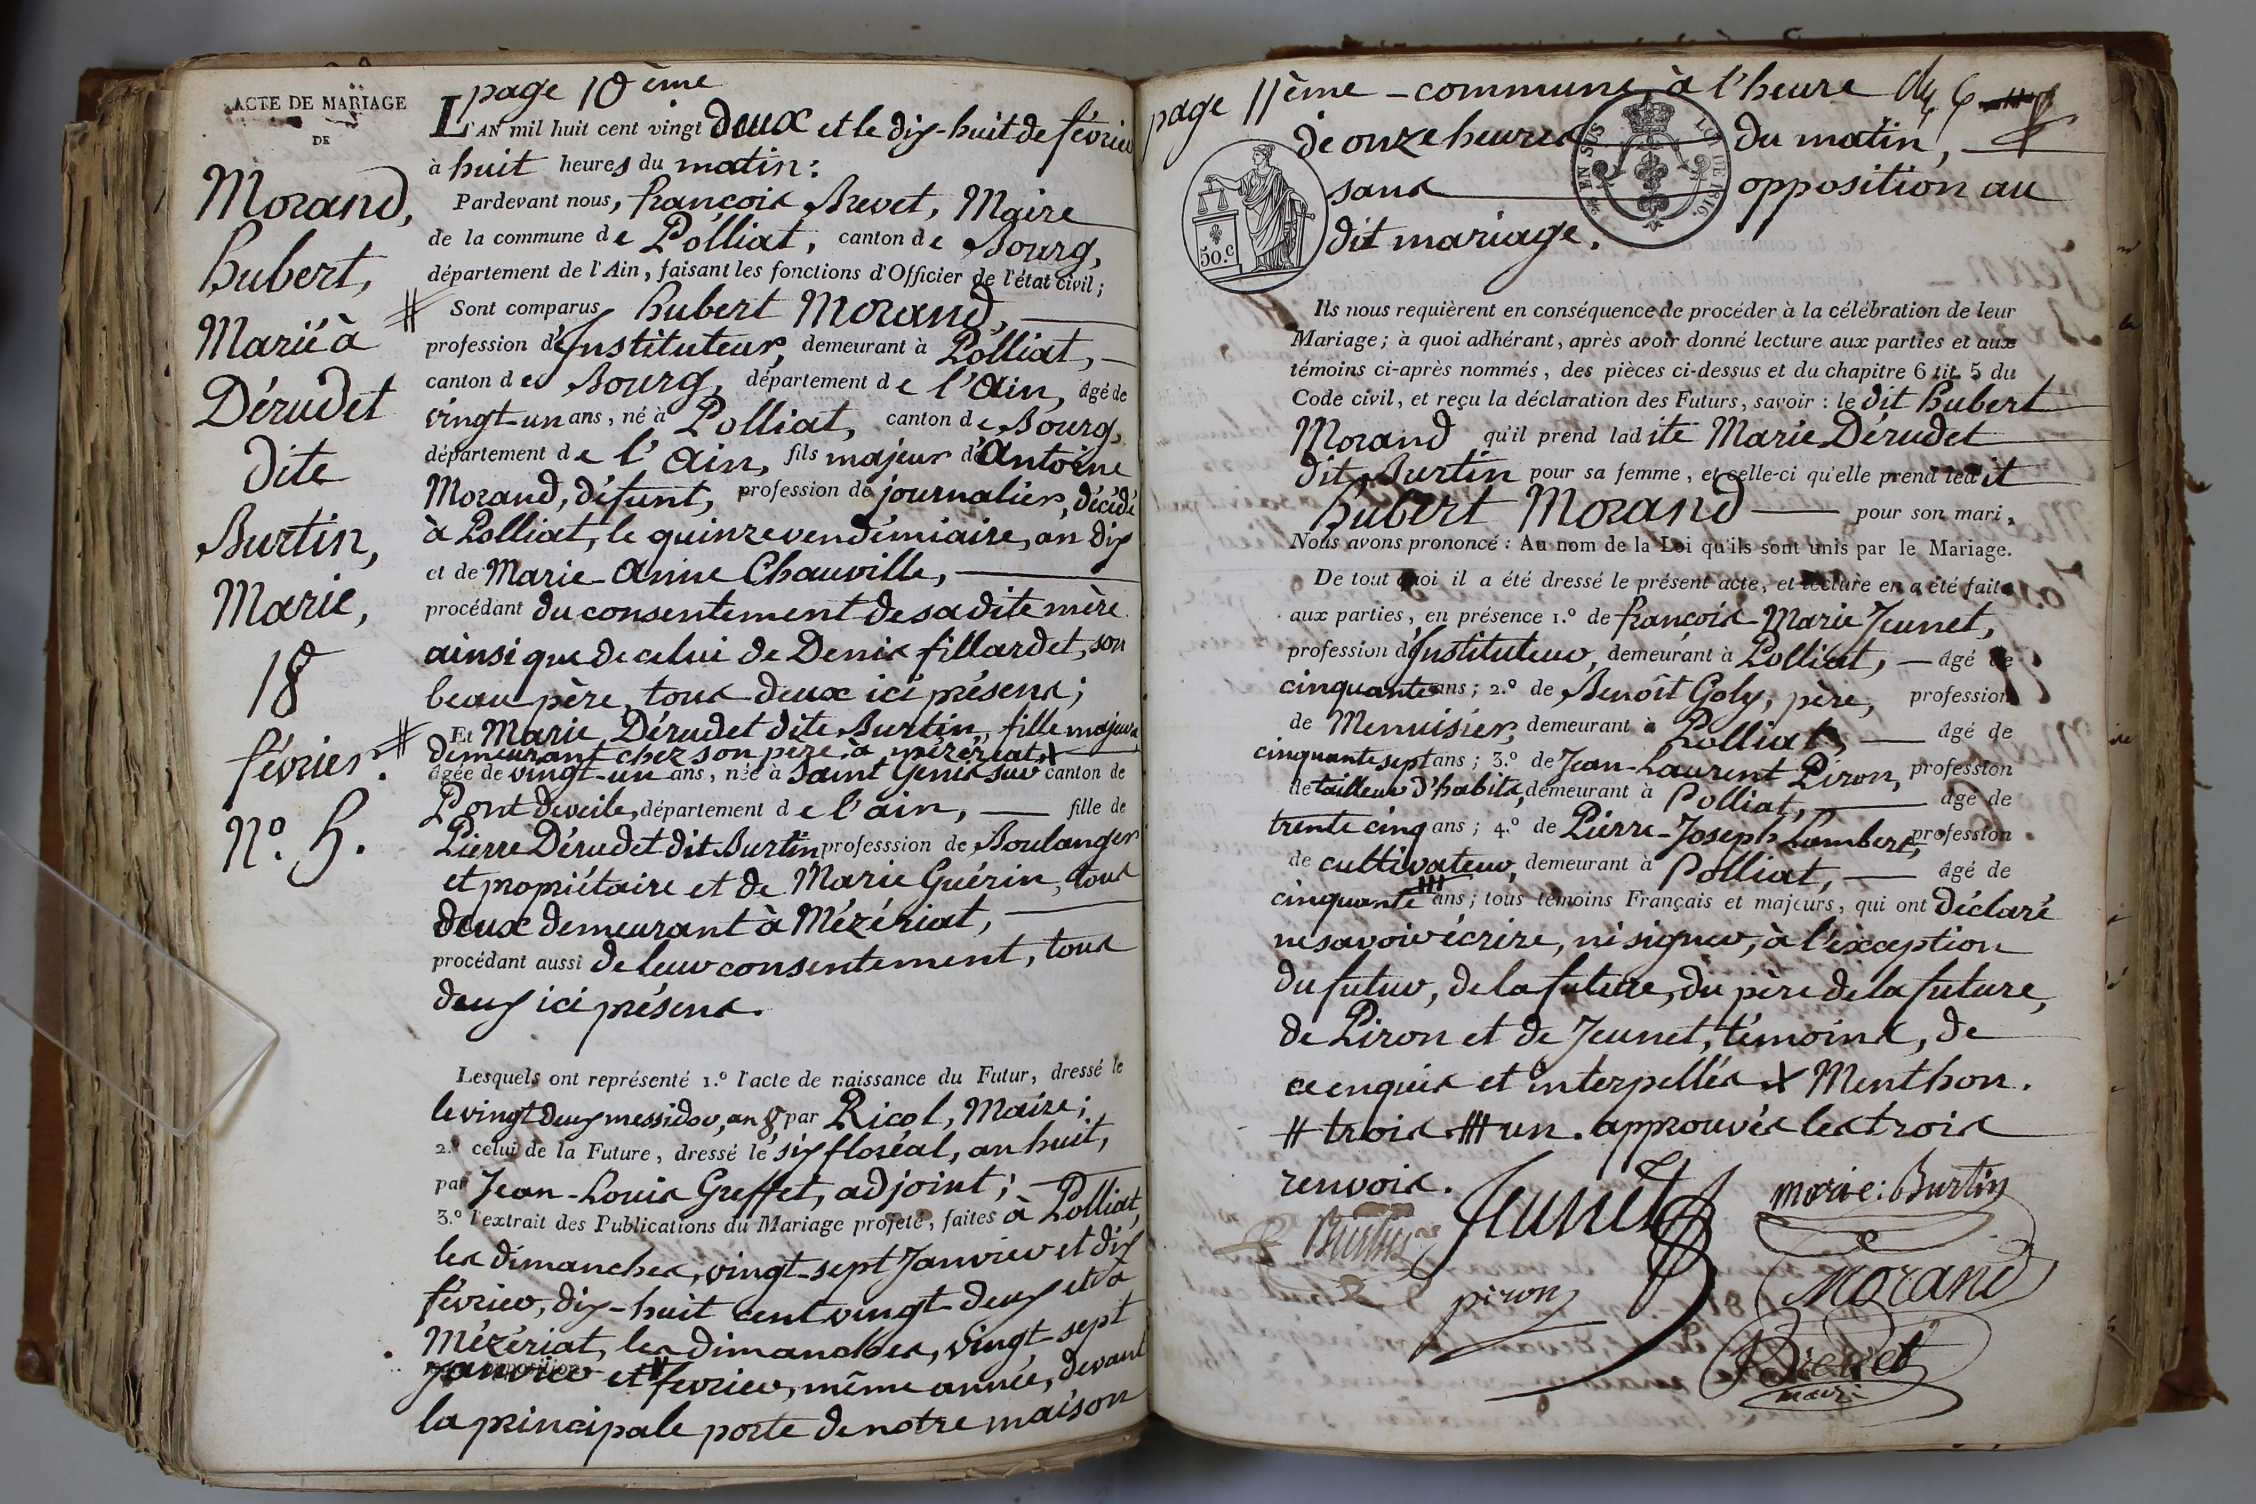 ACTE DE MARIAGE
DE
Morand,
hubert,
Marié à
Dérudet
dite
Burtin,
Marie,
18
février.
N.º 5.
page 10ème
L'AN mil huit cent vingt deux et le dix-huit de février
à huit heures du matin:
Pardevant nous, françois Brevet, Maire
de la commune de Polliat, canton de Bourg,
département de l'Ain, faisant les fonctions d'Officier de l'état civil;
# Sont comparus hubert Morand,
profession d'Instituteur, demeurant à Polliat,
canton de Bourg, département de l'Ain, âgé de
vingt-un ans, né à Polliat, canton de Bourg,
département de l'Ain, fils majeur d'Antoine
Morand, défunt, profession de journalier, décédé
à Polliat, le quinze vendémiaire, an dix
et de Marie-Anne Chauville,
procédant du consentement de sa dite mère
ainsi que de celui de Denis fillardet, son
beau père, tous deux ici présens;
# Et Marie Dérudet dite Burtin, fille majeure
demeurant chez son père à mézériat X
âgée de vingt-un ans, née à Saint Genis sur canton de
Pont deveile, département de l'ain, fille de
Pierre Dérudet dit Burtin professsion de Boulanger
et propriétaire et de Marie Guérin, tous
deux demeurant à Mézériat,
procédant aussi de leur consentement, tous
deux ici présens.
Lesquels ont représenté 1.º l'acte de naissance du Futur, dressé le
le vingt deux messidor, an 8 par Ricol, Maire;
2.º celui de la Future, dressé le six floréal, an huit,
par Jean-Louis Greffet, adjoint;
3.º l'extrait des Publications du Mariage projeté, faites à Polliat,
les dimanches, vingt-sept Janvier et dix
février, dix-huit cent vingt-deux et à
Mézériat, les dimanches, vingt-sept
janvier et # février, même année, devant
la principale porte de notre maison
page 11ème - commune, à l'heure
de onze heures du matin,
sans opposition au
dit mariage.
50.c
EN SUS
LOI DE 1816.
Ils nous requièrent en conséquence de procéder à la célébration de leur
Mariage; à quoi adhérant, après avoir donné lecture aux parties et aux
témoins ci-après nommés, des pièces ci-dessus et du chapitre 6 tit. 5 du
Code civil, et reçu la déclaration des Futurs, savoir: le dit hubert
Morand qu'il prend ladite Marie Dérudet
dit Burtin pour sa femme, et celle-ci qu'elle prend ledit
hubert Morand pour son mari,
Nous avons prononcé: Au nom de la Loi qu'ils sont unis par le Mariage.
De tout quoi il a été dressé le présent acte, et lecture en a été faite
aux parties, en présence 1.º de françois-Marie Jeunet,
profession d'Instituteur, demeurant à Polliat, âgé de
cinquante ans; 2.º de Benoît Goly, père, profession
de Menuisier, demeurant à Polliat, âgé de
cinquante sept ans; 3.º de Jean-Laurent Piron, profession
de tailleur d'habits, demeurant à Polliat, âgé de
trente cinq ans; 4.º de Pierre-Joseph Lambert, profession
de cultivateur, demeurant à Polliat, âgé de
cinquante ans; tous témoins Français et majeurs, qui ont déclaré
ne savoir écrire, ni signer, à l'exception
du futur, de la future, du père de la future,
de Piron et de Jeunet, témoins, de
ce enquis et interpellés X Menthon.
# trois. # un. approuvés les trois
renvois.
Jeunet
marie: Burtin
Burtin
piron
Morand
Brevet
maire